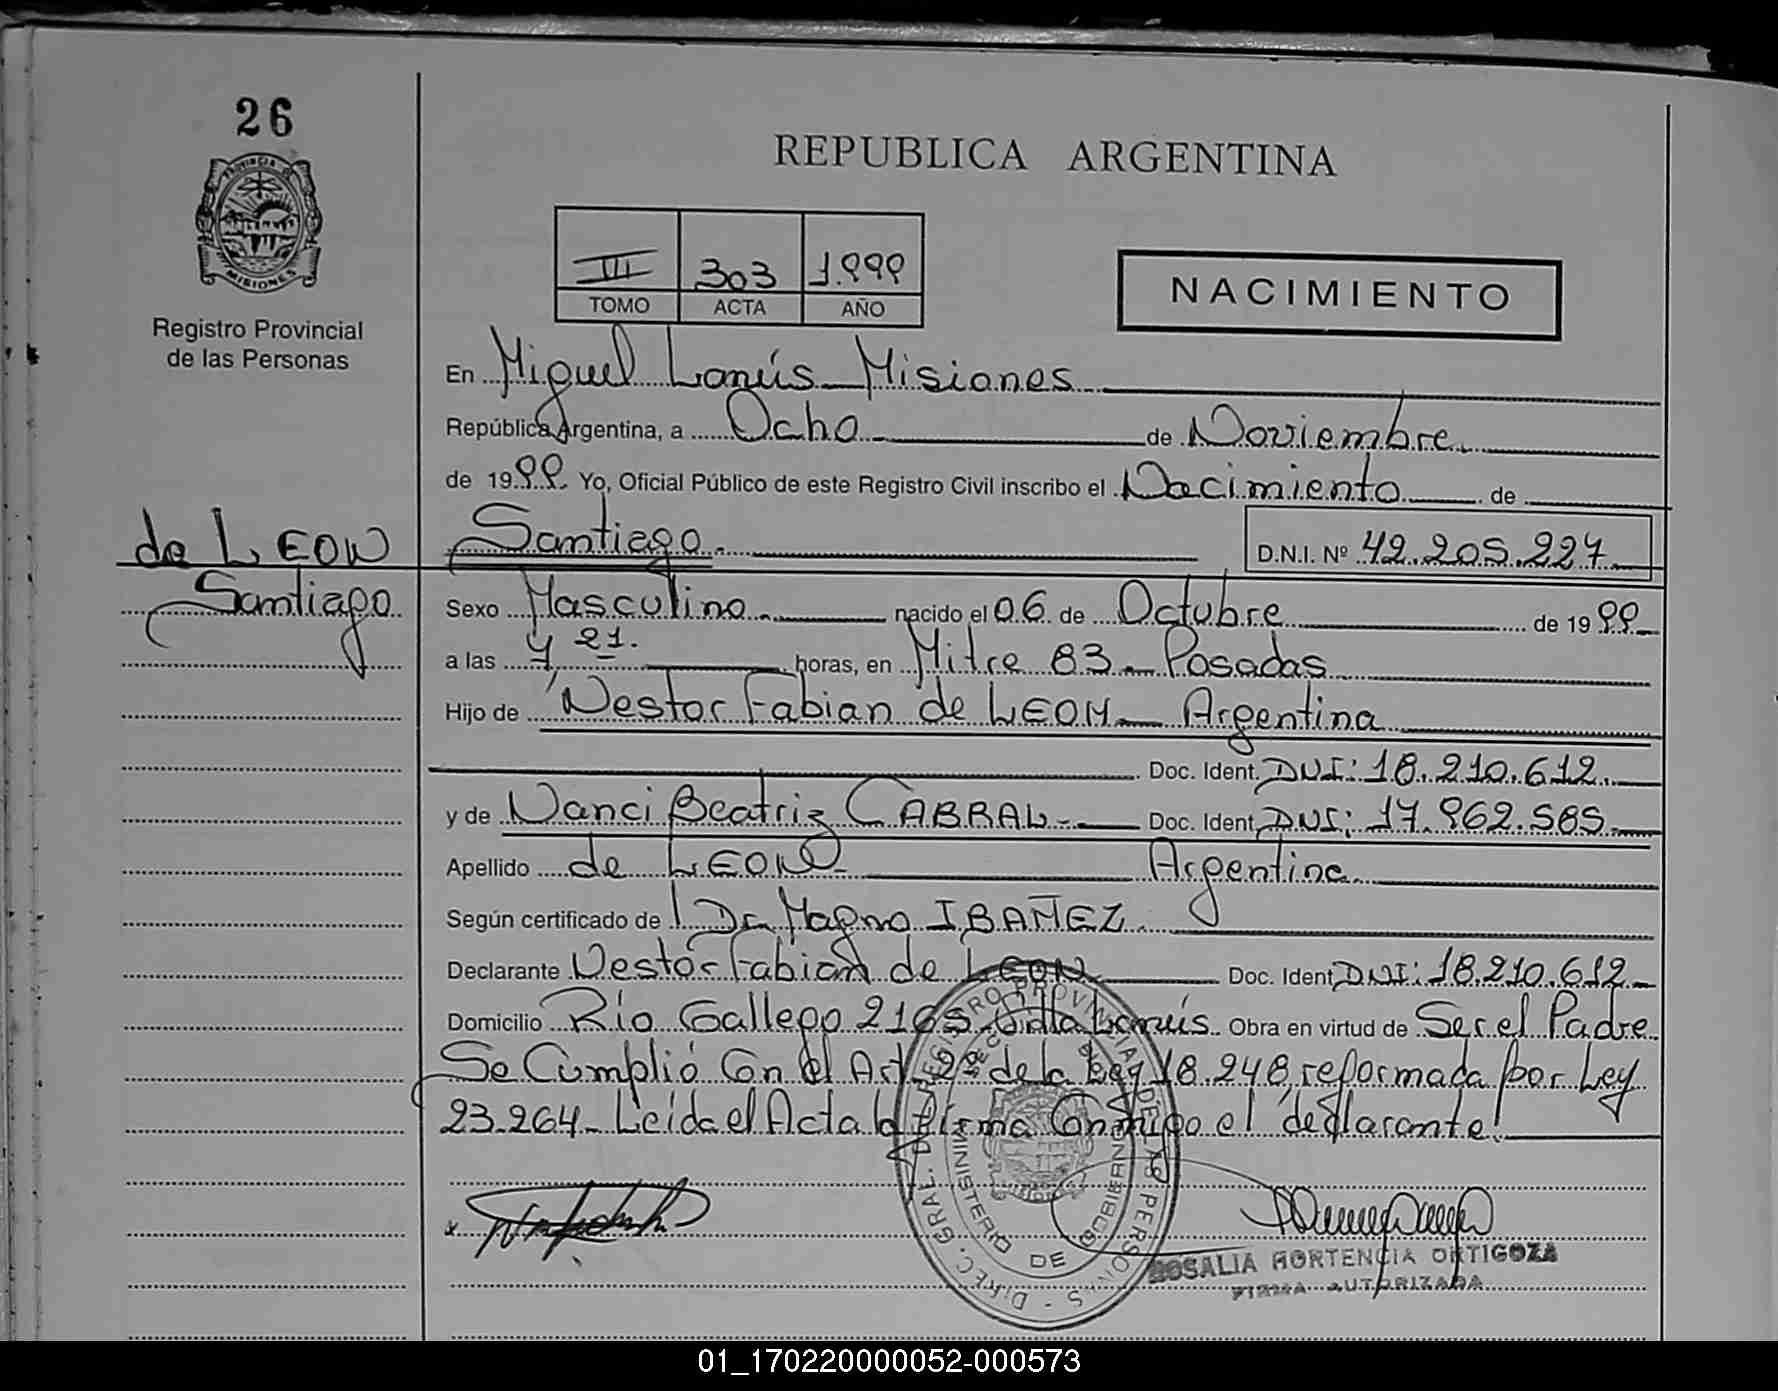 26
PROVINCIA DE
MISIONES
Registro Provincial
de las Personas
de LEON
Santiago
REPUBLICA ARGENTINA
III 303 1.999
TOMO ACTA AÑO
NACIMIENTO
En Miguel Lanús Misiones
República Argentina, a Ocho de Noviembre
de 1999 Yo, Oficial Público de este Registro Civil inscribo el Nacimiento de
Santiago D.N.I. Nº 42.205.227
Sexo Masculino nacido el 06 de Octubre de 1999
a las 4 21. horas, en Mitre 83 Posadas
Hijo de Nestor Fabian de LEON Argentina
Doc. Ident. DNI: 18.210.612
y de Nanci Beatriz CABRAL Doc. Ident. DNI: 17.962.585
Apellido de LEON Argentina
Según certificado de Dr Magno IBAÑEZ
Declarante Nestor Fabian de LEON Doc. Ident. DNI: 18.210.612
Domicilio Río Gallego 2165 Villa Lanús Obra en virtud de Ser el Padre
Se Cumplió Con el Art. 2º de la Ley 18.248 reformada por Ley
23.264 Leída el Acta la firma Conmigo el declarante
DIREC. GRAL. DEL REGISTRO PROVINCIAL DE LAS PERSONAS
MINISTERIO DE GOBIERNO
ROSALIA HORTENCIA ORTIGOZA
FIRMA AUTORIZADA
01_170220000052-000573